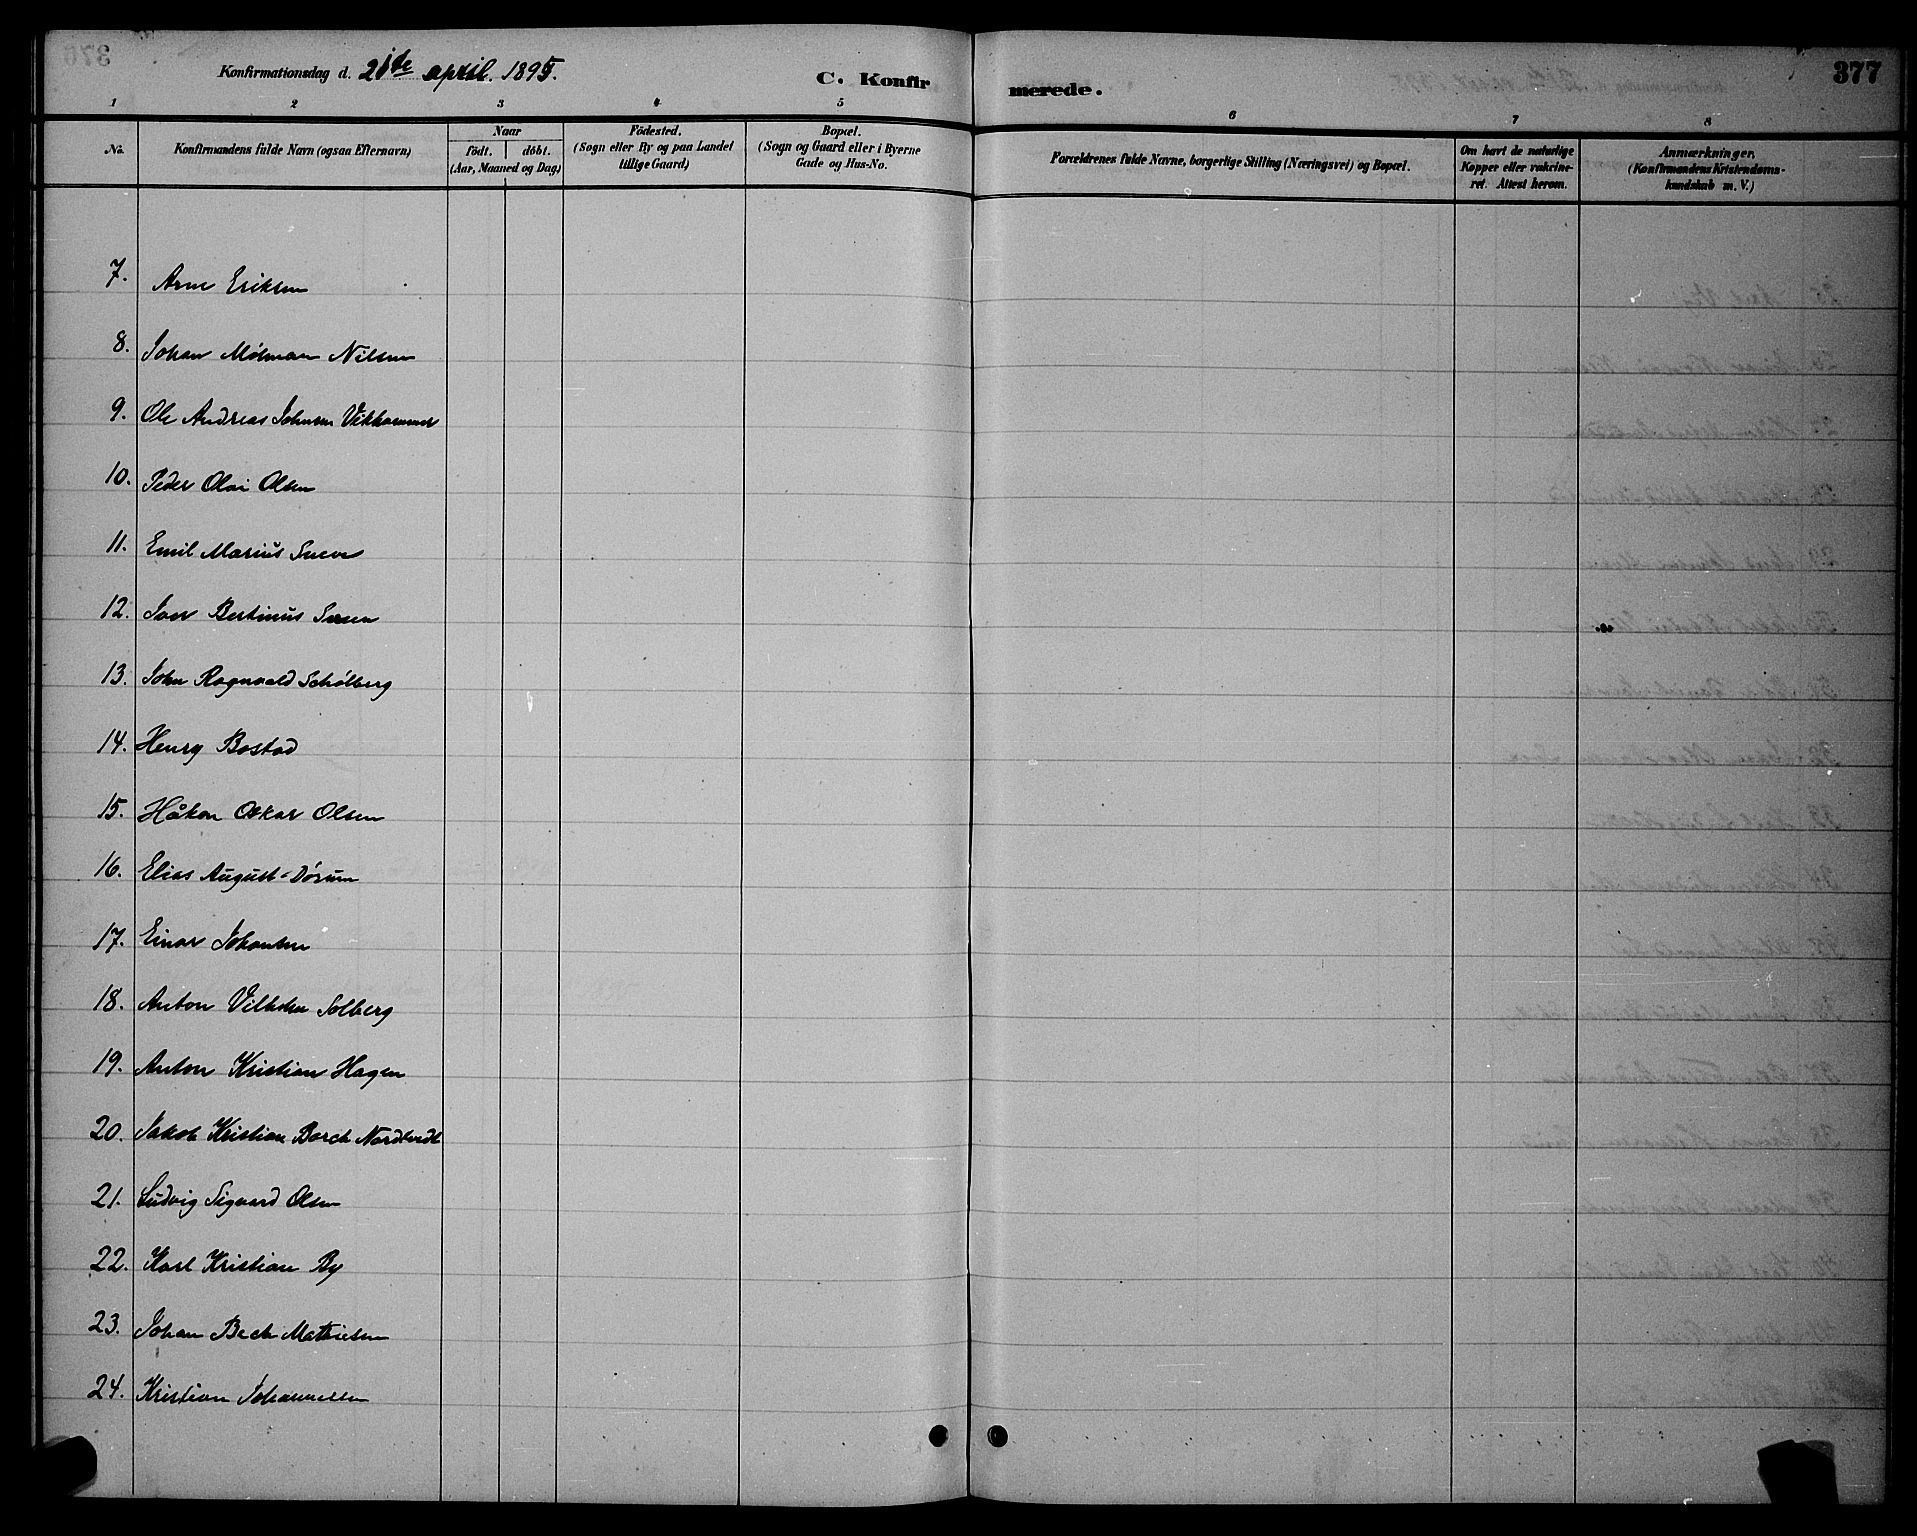 Konfirmationsdag d. 21de april. 1895.
C. Konfirmerede.
377
1 2 3 4 5 6 7 8
No.
Konfirmandens fulde Navn (ogsaa Efternavn)
Naar
födt. döbt.
(Aar, Maaned og Dag)
Födested.
(Sogn eller By og paa Landet
tillige Gaard)
Bopæl.
(Sogn og Gaard eller i Byerne
Gade og Hus-No.
Forældrenes fulde Navne, borgerlige Stilling (Næringsvei) og Bopæl.
Om havt de naturlige
Kopper eller vakcine-
ret. Attest herom.
Anmærkninger.
(Konfirmandens Kristendoms-
kundskab m. V.)
7. Arne Eriksen
8. Johan Mølman Nilsen
9. Ole Andreas Johnsen
10. Peder Olai Olsen
11. Emil Marius Sneve
12. Iver Bertinus
13. John Ragnvald Schölberg
14. Henry Bostad
15. Håkon Oskar Olsen
16. Elias August Dørum
17. Einar Johansen
18. Anton Vilhelm Solberg
19. Anton Kristian Hagen
20. Jakob Kristian Borch Nordtvedt
21. Ludvig Sigvard Olsen
22. Karl Kristian By
23. Johan Bech Mathiesen
24. Kristian Johannessen